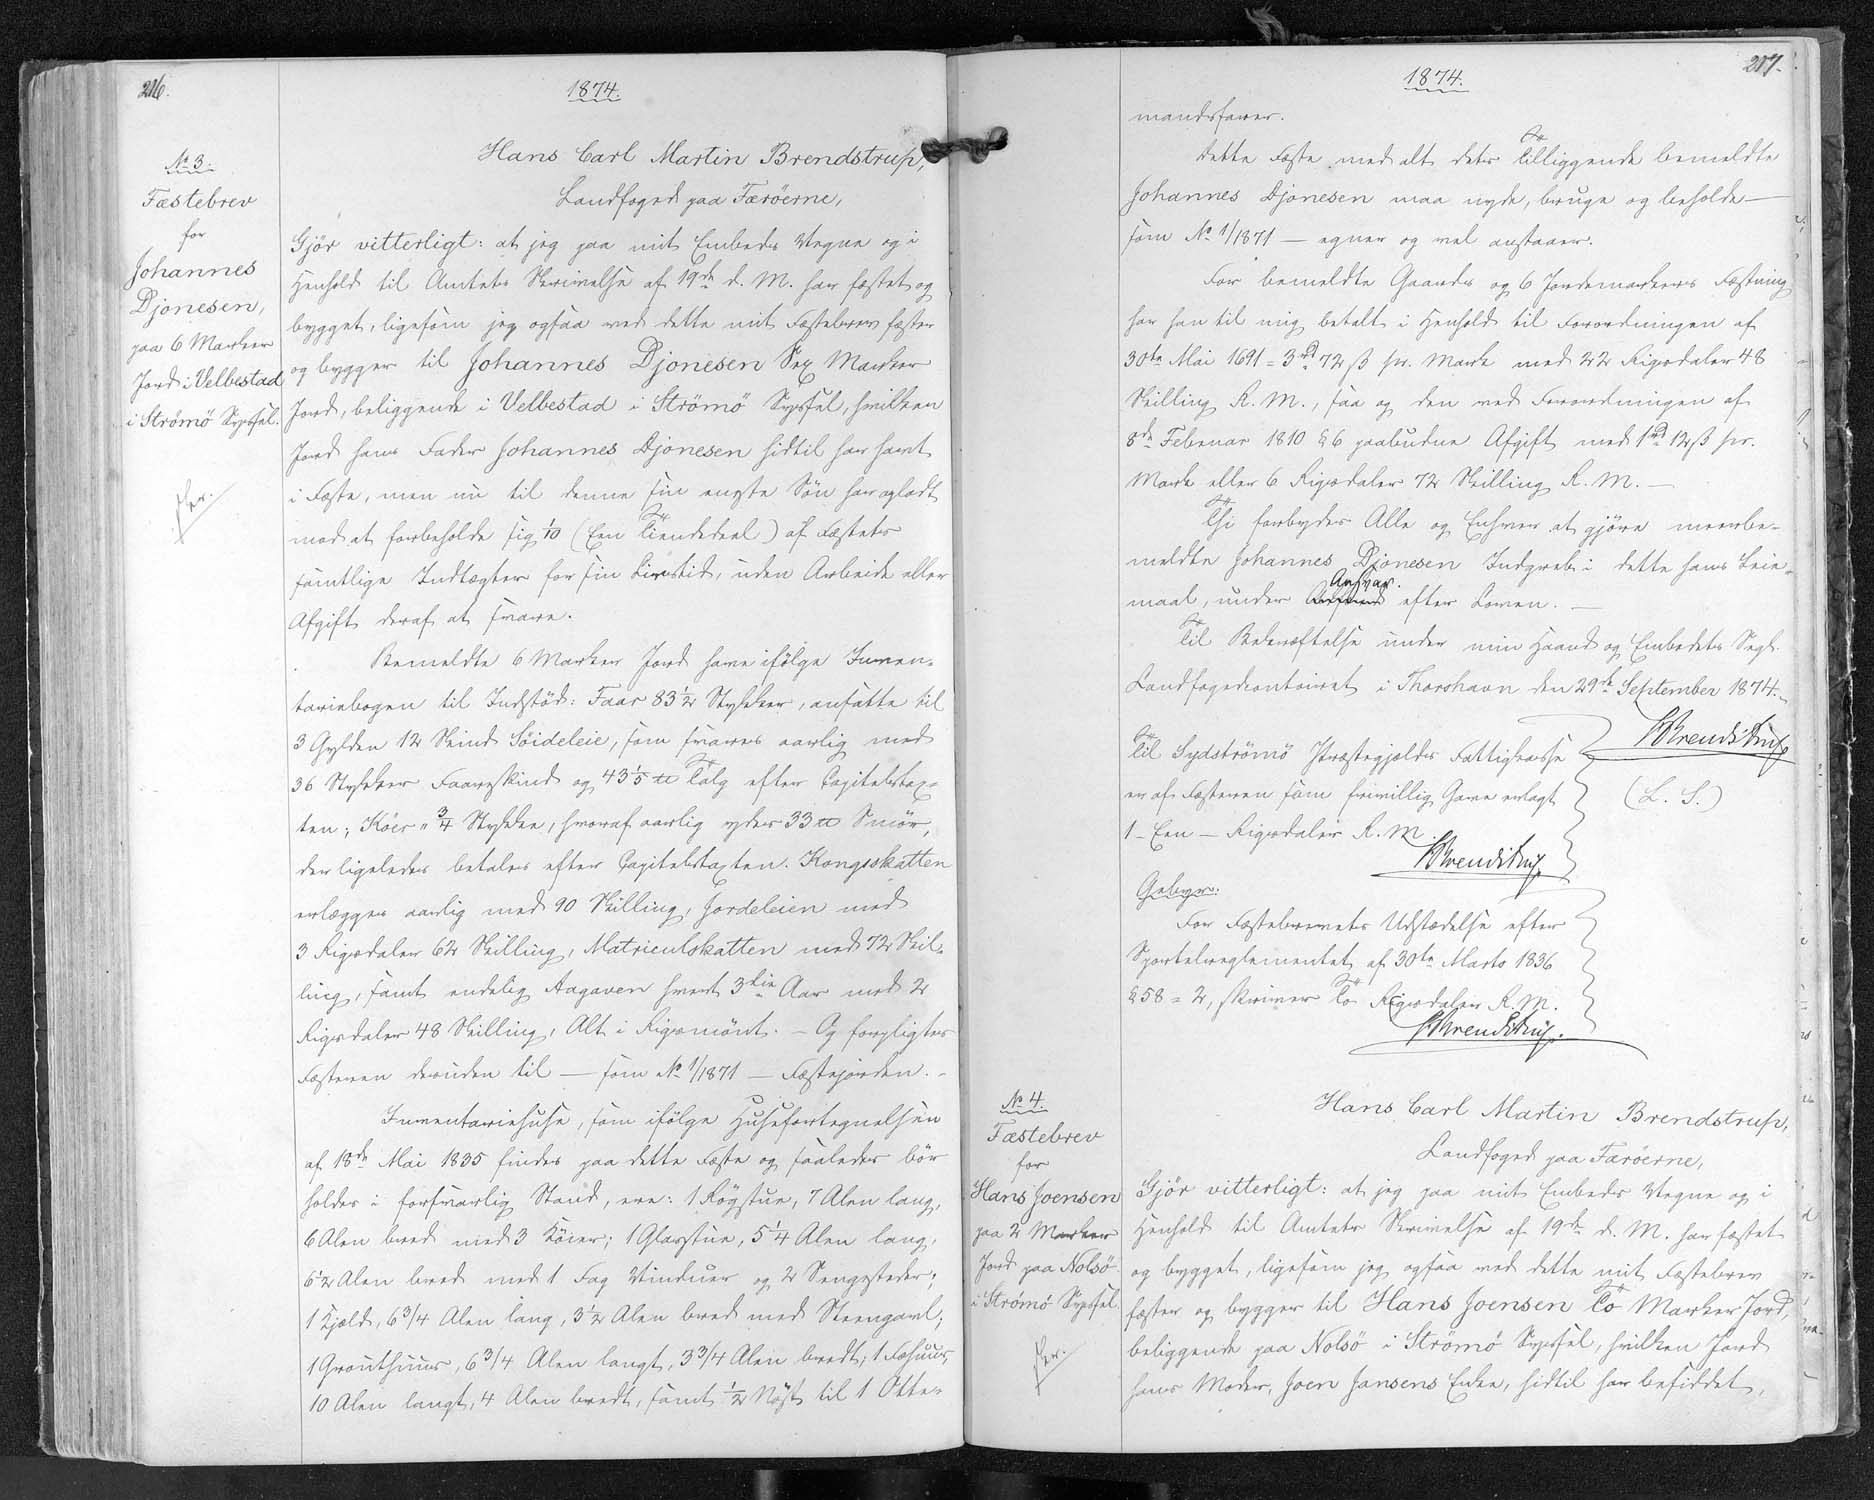 216.
1874.
No 3.
Fæstebrev
for
Johannes
Djonesen,
paa 6 Marker
Jord i Velbestad
i Strömö Syssel.
Hans Carl Martin Brendstrup,
Landfoged paa Færöerne,
Gjör vitterligt: at jeg paa mit Embeds Vegne og i
Henhold til Amtets Skrivelse af 19de d. M. har fæstet og
bygget, ligesom jeg ogsaa ved dette mit Fæstebrev fæster
og bygger til Johannes Djonesen Sex Marker
Jord, beliggende i Velbestad i Strömö Syssel, hvilken
Jord hans Fader Johannes Djonesen hidtil har havt
i Fæste, men nu til denne sin ægte Sön har opladt
mod at forbeholde sig 1/10 (Een Tiendedeel) af Fæstets
samtlige Indtægter for sin Livstid, uden Arbeide eller
Afgift deraf at svare.
Bemeldte 6 Marker Jord have ifölge Inven-
tariebogen til Indstöd: Faar 83 1/2 Stykker, ansatte til
3 Gylden 12 Skind Söideleie, som svares aarlig med
36 Stykker Faareskind og 43 1/5 ℔ Talg efter Capitelstax-
ten; Köer " 3/4 Stykke, hvoraf aarlig ydes 33 ℔ Smör,
der ligeledes betales efter Capitelstaxten. Kongsskatten
erlægges aarlig med 90 Skilling, Jordeleien med
3 Rigsdaler 62 Skilling, Matriculskatten med 72 Skil-
ling, samt endelig Aagaven hvert 3die Aar med 2
Rigsdaler 48 Skilling, Alt i Rigsmönt. – Og forpligtes
Fæsteren desuden til — som No 1/1871 — Fæstejorden. –
Inventariehuse, som ifölge Husefortegnelsen
af 18de Mai 1835 findes paa dette Fæste og saaledes bör
holdes i forsvarlig Stand, ere: 1 Rögstue, 7 Alen lang,
6 Alen bred med 3 Köier; 1 Glasstue, 5 1/4 Alen lang,
6 1/2 Alen bred med 1 Fag Vinduer og 2 Sengesteder;
1 Hjald, 6 3/4 Alen lang, 3 1/2 Alen bred med Steengavl;
1 Grouthuus, 6 3/4 Alen langt, 3 3/4 Alen bredt; 1 Fæhuus,
10 Alen langt, 4 Alen bredt, samt 1/2 Nöst til 1 Otte-
217.
1874.
mandsfarer.
Dette Fæste med alt dets tilliggende bemeldte
Johannes Djonesen maa nyde, bruge og beholde —
som No 1/1871 — egner og vel anstaaer.
For bemeldte Gaards og 6 Jordemarkers Fæstning
har han til mig betalt i Henhold til Forordningen af
30te Mai 1691 = 3 rd 72 ß pr. Mark med 22 Rigsdaler 48
Skilling R. M., saa og den ved Forordningen af
8de Februar 1810 § 6 paabudne Afgift med 1 rd 12 ß pr.
Mark eller 6 Rigsdaler 72 Skilling R. M. —
Thi forbydes Alle og Enhver at gjöre meerbe-
meldte Johannes Djonesen Indgreb i dette hans Leie-
Ansvar.
maal, under efter Loven. —
Til Bekræftelse under min Haand og Embedets Segl.
Landfogedcontoiret i Thorshavn den 29de September 1874.
Brendstrup
(L. S.)
Til Sydströmö Præstegjælds Fattigkasse
er af Fæsteren som frivillig Gave erlagt
1 – Een – Rigsdaler R. M.
Brendstrup.
Gebyr:
For Fæstebrevets Udstædelse efter
Sportelreglementet af 30te Marts 1836
§ 58 = 2, skriver To Rigsdaler R. M.
Brendstrup.
No 4.
Fæstebrev
for
Hans Joensen
paa 2 Marker
Jord paa Nolsö
i Strömö Syssel.
Hans Carl Martin Brendstrup,
Landfoged paa Færöerne,
Gjör vitterligt: at jeg paa mit Embeds Vegne og i
Henhold til Amtets Skrivelse af 19de d. M. har fæstet
og bygget, ligesom jeg ogsaa ved dette mit Fæstebrev
fæster og bygger til Hans Joensen To Marker Jord,
beliggende paa Nolsö i Strömö Syssel, hvilken Jord
hans Moder, Joen Jansens Enke, hidtil har besiddet,